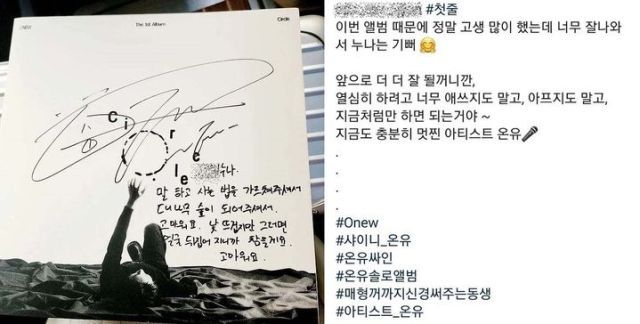 The 1st Album
Circle
누나.
말 하고 사는 법을 가르쳐주셔서
대나무 숲이 되어주셔서.
고마워요. 낯 뜨겁지만 그러면
얼굴 뒤집어 지니까 참을게요.
고마워요.
#첫줄
이번 앨범 때문에 정말 고생 많이 했는데 너무 잘나와
서 누나는 기뻐 🤗
앞으로 더 더 잘 될꺼니깐,
열심히 하려고 너무 애쓰지도 말고, 아프지도 말고,
지금처럼만 하면 되는거야 ~
지금도 충분히 멋찐 아티스트 온유🎤
.
.
.
.
#Onew
#샤이니_온유
#온유싸인
#온유솔로앨범
#매형꺼까지신경써주는동생
#아티스트_온유